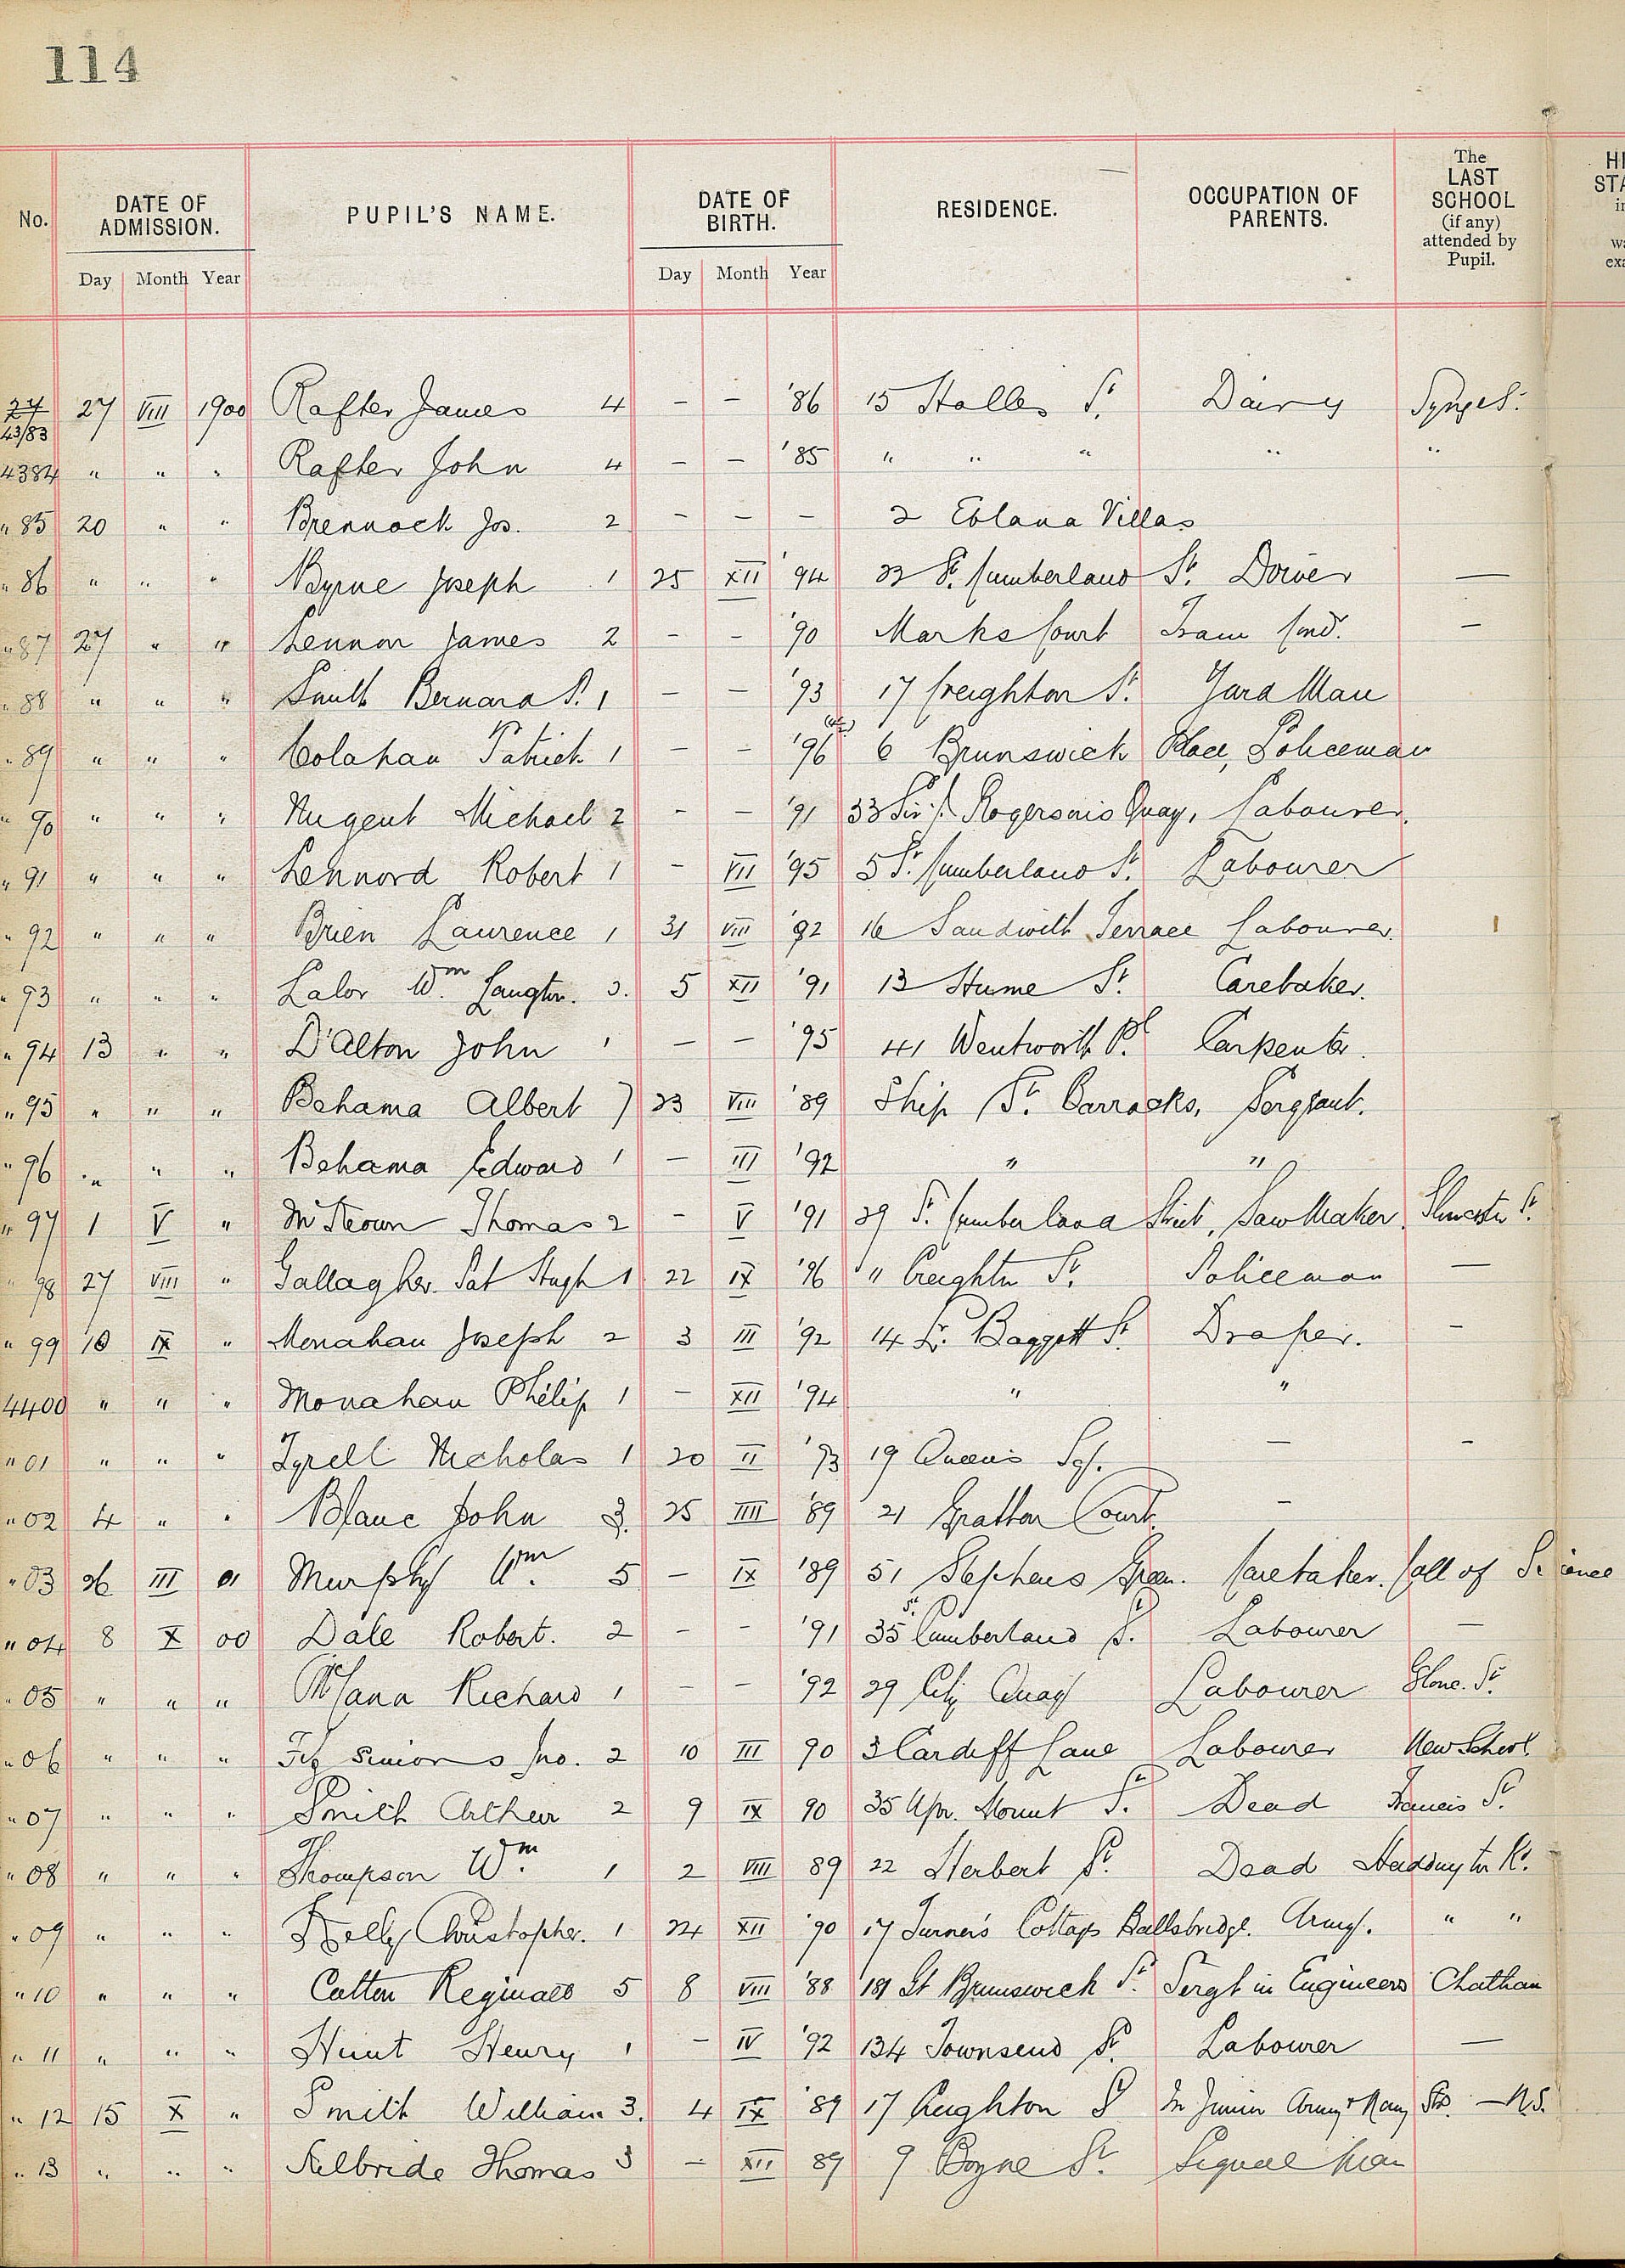 114
No. DATE OF ADMISSION. PUPIL'S NAME. DATE OF BIRTH. RESIDENCE. OCCUPATION OF PARENTS. The LAST SCHOOL (if any) attended by Pupil.
Day Month Year Day Month Year
27 4383 27 VIII 1900 Rafter James 4 – – '86 15 Holles St. Dairy Synge St.
4384 " " " Rafter John 4 – – '85 " " " " "
" 85 20 " " Brennock Jos. 2 – – – 2 Eblana Villas
" 86 " " " Byrne Joseph 1 25 XII '94 22 St. Cumberland St. Driver —
" 87 27 " " Lennon James 2 – – '90 Marks Court Tram Cond. –
" 88 " " " Smith Bernard P. 1 – – '93 17 Creighton St. Yard Man
" 89 " " " Colahan Patrick 1 – – '96 6 Brunswick Place, Policeman
" 90 " " " Nugent Michael 2 – – '91 33 Sir J. Rogersons Quay, Labourer.
" 91 " " " Lennord Robert 1 – VII '95 5 St. Cumberland St. Labourer
" 92 " " " Brien Laurence 1 31 VIII '92 16 Sandwith Terrace Labourer.
" 93 " " " Lalor Wm. Langtn. 3. 5 XII '91 13 Hume St. Caretaker.
" 94 13 " " D'Alton John 1 – – '95 41 Wentworth Pl. Carpenter.
" 95 " " " Behama Albert 23 VIII '89 Ship St. Barracks, Sergeant.
" 96 " " " Behama Edward 1 – III '92 " "
" 97 1 V " McKeown Thomas 2 – V '91 29 St. Cumberland Street, Saw Maker.
" 98 27 VIII " Gallagher Pat Hugh 1 22 IX '96 " Creightn St. Policeman —
" 99 10 IX " Monahan Joseph 2 3 III '92 14 Lr. Baggott St. Draper. –
4400 " " " Monahan Philip 1 – XII '94 " "
" 01 " " " Tyrell Nicholas 1 20 II '93 19 Queen's Sq. — –
" 02 4 " " Blanc John 3. 25 IIII '89 21 Grattan Court. –
" 03 26 III 01 Murphy Wm. 5 – IX '89 51 Stephens Green. Caretaker. Coll of Science
" 04 8 X 00 Dale Robert. 2 – – '91 35 St. Cumberland St. Labourer —
" 05 " " " McCann Richard 1 – – '92 29 City Quay Labourer Glouc. St.
" 06 " " " Fitzsimons Jno. 2 10 III 90 3 Cardiff Lane Labourer New School.
" 07 " " " Smith Arthur 2 9 IX 90 35 Upr. Mount St. Dead Francis St.
" 08 " " " Thompson Wm. 1 2 VIII 89 22 Herbert St. Dead Haddington Rd.
" 09 " " " Kelly Christopher. 1 24 XII '90 17 Turner's Cottags Ballsbridge. Army. " "
" 10 " " " Cotton Reginald 5 8 VIII '88 181 Gt Brunswick St. Sergt in Engineers Chatham
" 11 " " " Hunt Henry 1 – IV '92 134 Townsend St. Labourer —
" 12 15 X " Smith William 3. 4 IX '89 17 Creighton St In Junior Army & Navy Sts. — N.S.
" 13 " " " Kilbride Thomas 3 – XII 89 9 Boyne St. Signal Man